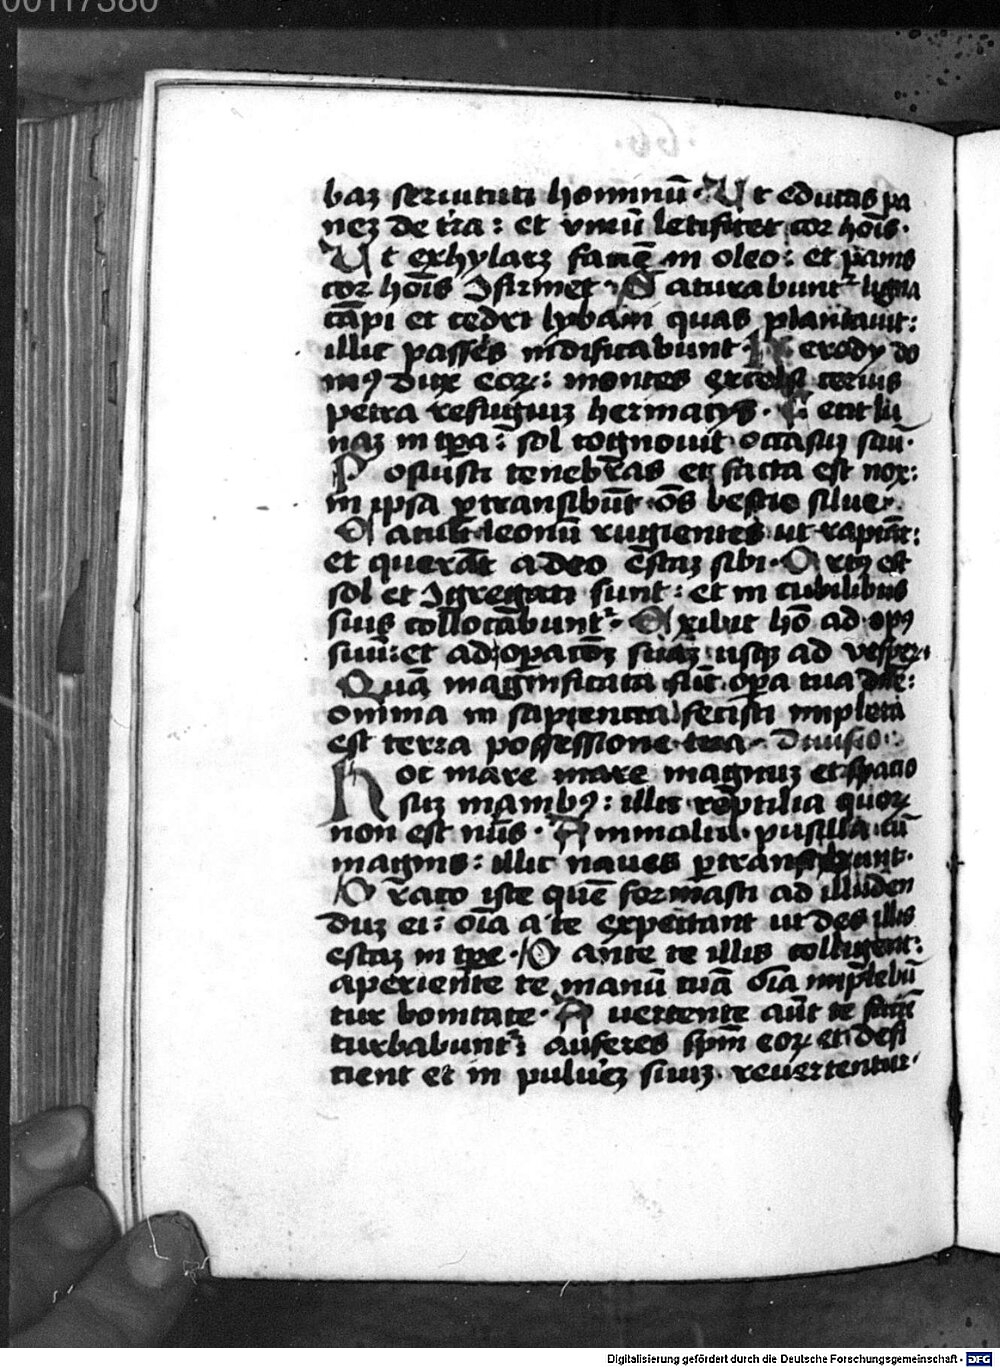 00117380
baʒ seruituti hominū · Ut educas pa
neʒ de t̄ra : et vinū letificet cor hōis ·
Ut exhylareʒ faciē in oleo : et panis
cor hōis ꝯfirmet · Saturabunt͛ ligna
cāpi et cedri lybani quas plantauit :
illic passeres nidificabunt · herodÿ do
mꝰ dux eoꝝ : montes excelsi ceruis
petra refugiuʒ hermacÿs · Fecit lu
naʒ in tp̄a : sol cognouit occasuʒ suū ·
Posuisti tenebras et facta est nox :
in ipsa ꝑtransibūt oēs bestie silue ·
Catuli leonū rugientes ut rapiāt :
et querāt a deo escaʒ sibi · Ortꝰ est
sol et ꝯgregati sunt : et in cubilibus
suis collocabunt͛ · Exibit hō ad opꝰ
suū : et ad oꝑatōeʒ suaʒ usqꝫ ad vesꝑeʒ
Quā magnificata sūt oꝑa tua dn̄e :
omnia in sapientia fecisti impleta
est terra possessione tua · Diuisio :
Hoc mare mare magnuʒ et spacio
suʒ manibꝰ : illic reptilia quoꝝ
non est nūs · Animalia pusilla cū
magnis : illic naues ꝑtransibunt ·
Draco iste quē formasti ad illuden
duʒ ei : oīa a te expectant ut des illis
escaʒ in tp̄e · Dante te illis colligent :
aperiente te manū tuā oīa implebū
tur bonitate · Auertente aūt te faciē
turbabunt͛ : auferes spm̄ eoꝝ et defi
cient et in pulu̅eʒ suuʒ reuertentur ·
Digitalisierung gefördert durch die Deutsche Forschungsgemeinschaft - DFG